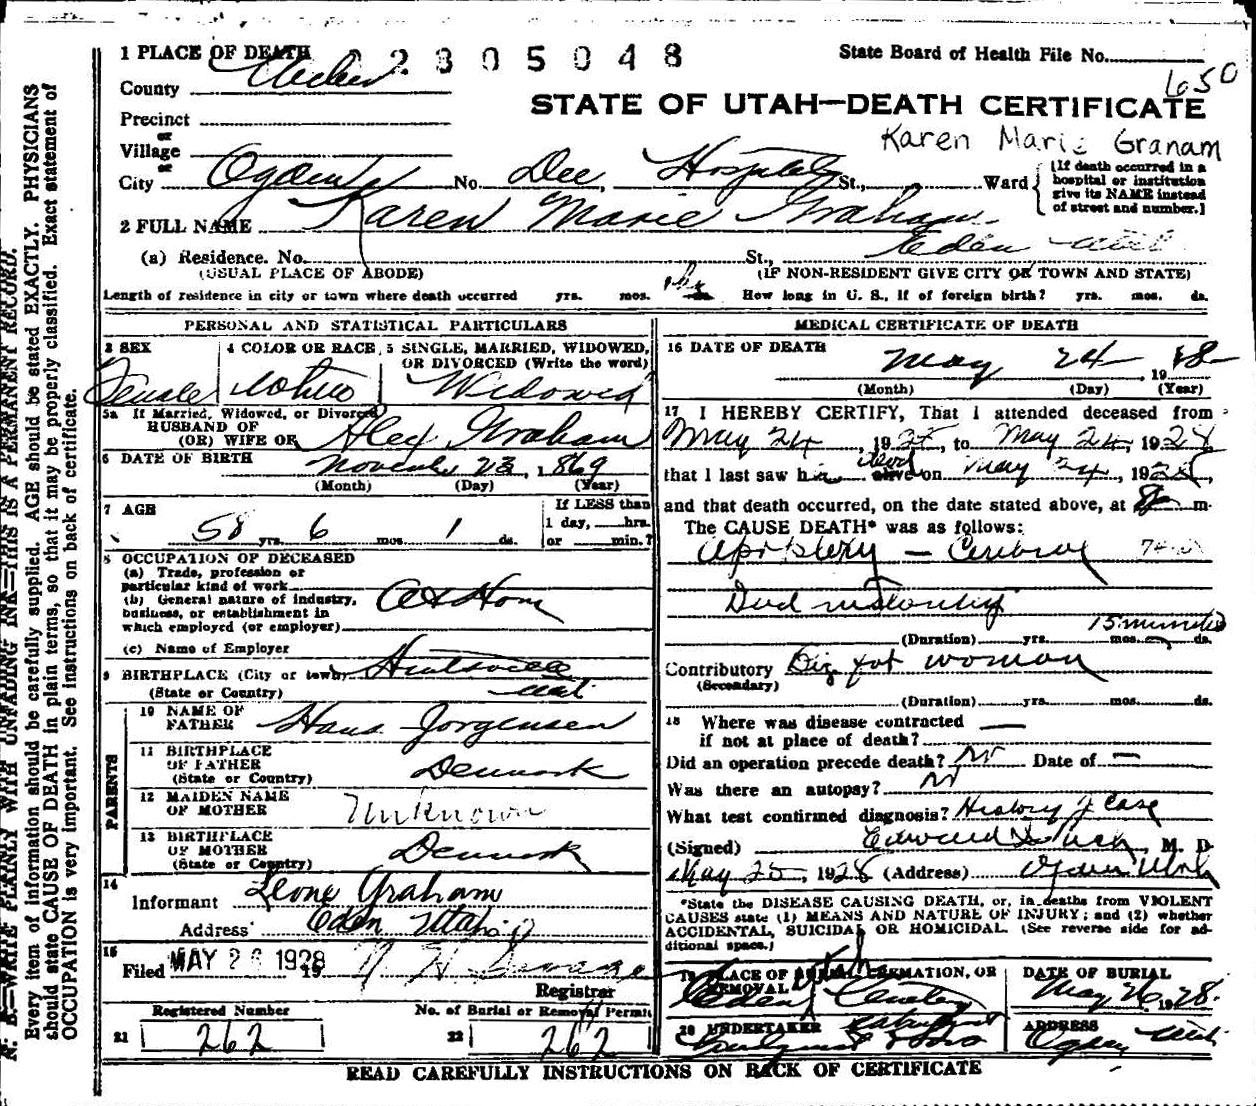 1 PLACE OF DEATH 2305048 State Board of Health File No.
650
County Weber
STATE OF UTAH—DEATH CERTIFICATE
Precinct
or
Karen Marie Granam
Village
or
City Ogden No. Dee Hospital St., Ward
[If death occurred in a
hospital or institution
give its NAME instead
of street and number.]
2 FULL NAME Karen Marie Graham
(a) Residence. No. St., Eden Utah
(USUAL PLACE OF ABODE) (IF NON-RESIDENT GIVE CITY OR TOWN AND STATE)
Length of residence in city or town where death occurred yrs. mos. ds. How long in U. S., if of foreign birth? yrs. mos. ds.
PERSONAL AND STATISTICAL PARTICULARS
3 SEX 4 COLOR OR RACE 5 SINGLE, MARRIED, WIDOWED,
OR DIVORCED (Write the word)
Female White Widowed
5a If Married, Widowed, or Divorced
HUSBAND OF
(OR) WIFE OF Alex Graham
6 DATE OF BIRTH November 23, 1869
(Month) (Day) (Year)
7 AGE If LESS than
58 yrs. 6 mos. 1 ds. 1 day, hrs.
or min.?
8 OCCUPATION OF DECEASED
(a) Trade, profession or
particular kind of work At Home
(b) General nature of industry,
business, or establishment in
which employed (or employer)
(c) Name of Employer
9 BIRTHPLACE (City or town) Huntsville
(State or Country) Utah
PARENTS
10 NAME OF
FATHER Hans Jorgensen
11 BIRTHPLACE
OF FATHER
(State or Country) Denmark
12 MAIDEN NAME
OF MOTHER Unknown
13 BIRTHPLACE
OF MOTHER
(State or Country) Denmark
14
Informant Leone Graham
Address Eden Utah
15
Filed MAY 26 1928 19
Registrar
Registered Number No. of Burial or Removal Permit
21 262 22 262
MEDICAL CERTIFICATE OF DEATH
16 DATE OF DEATH
May 24, 1928
(Month) (Day) (Year)
17 I HEREBY CERTIFY, That I attended deceased from
May 24, 1928, to May 24, 1928
that I last saw her dead alive on May 24, 1928,
and that death occurred, on the date stated above, at 8 m.
The CAUSE DEATH* was as follows:
Apoplexy — Cerebral
Died instantly
15 minutes
(Duration) yrs. mos. ds.
Contributory Big fat woman
(Secondary)
(Duration) yrs. mos. ds.
18 Where was disease contracted —
if not at place of death?
Did an operation precede death? No Date of —
Was there an autopsy? No
What test confirmed diagnosis? History of Case
(Signed) Edward M. D.
May 25, 1928 (Address) Ogden Utah
*State the DISEASE CAUSING DEATH, or, in deaths from VIOLENT
CAUSES state (1) MEANS AND NATURE OF INJURY; and (2) whether
ACCIDENTAL, SUICIDAL OR HOMICIDAL. (See reverse side for ad-
ditional space.)
19 PLACE OF BURIAL, CREMATION, OR
REMOVAL Utah
Eden Cemetery
DATE OF BURIAL
May 26, 1928.
20 UNDERTAKER
& Sons
ADDRESS
Ogden Utah
READ CAREFULLY INSTRUCTIONS ON BACK OF CERTIFICATE
N. B.—WRITE PLAINLY WITH UNFADING INK—THIS IS A PERMANENT RECORD.
Every item of information should be carefully supplied. AGE should be stated EXACTLY. PHYSICIANS
should state CAUSE OF DEATH in plain terms, so that it may be properly classified. Exact statement of
OCCUPATION is very important. See instructions on back of certificate.